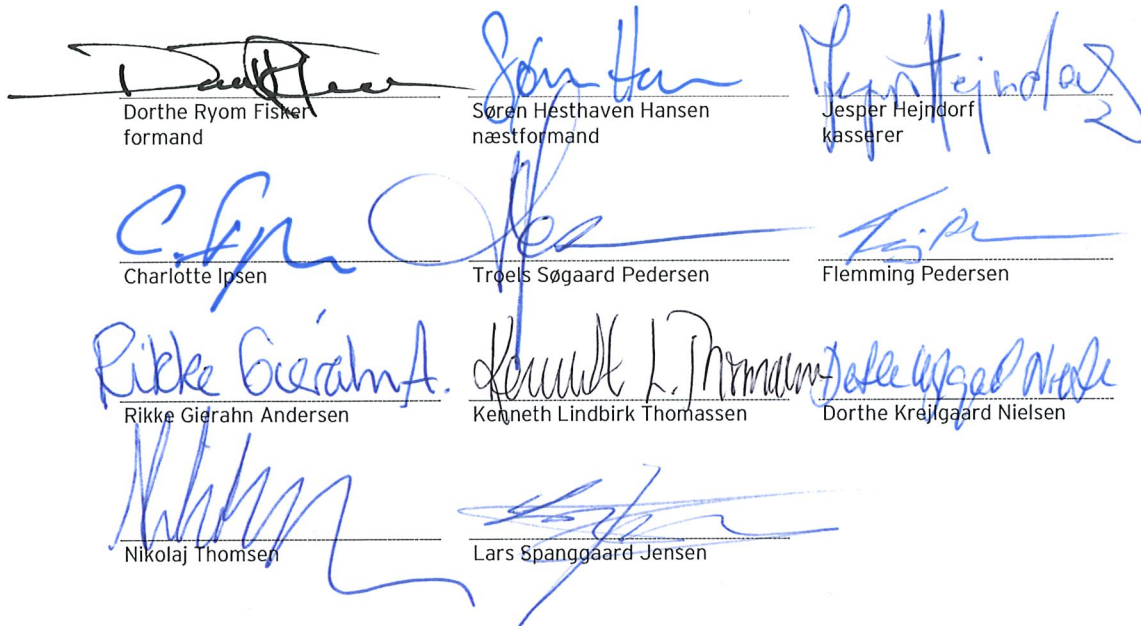 Dorthe Ryom Fisker
formand
Søren Hesthaven Hansen
næstformand
Jesper Hejndorf
Jesper Hejndorf
kasserer
C. Ipsen
Charlotte Ipsen
Troels Søgaard Pedersen
Flemming Pedersen
Rikke Gierahn A.
Rikke Gierahn Andersen
Kenneth L. Thomassen
Kenneth Lindbirk Thomassen
Dorthe Krejlgaard Nielsen
Nikolaj Thomsen
Lars Spanggaard Jensen